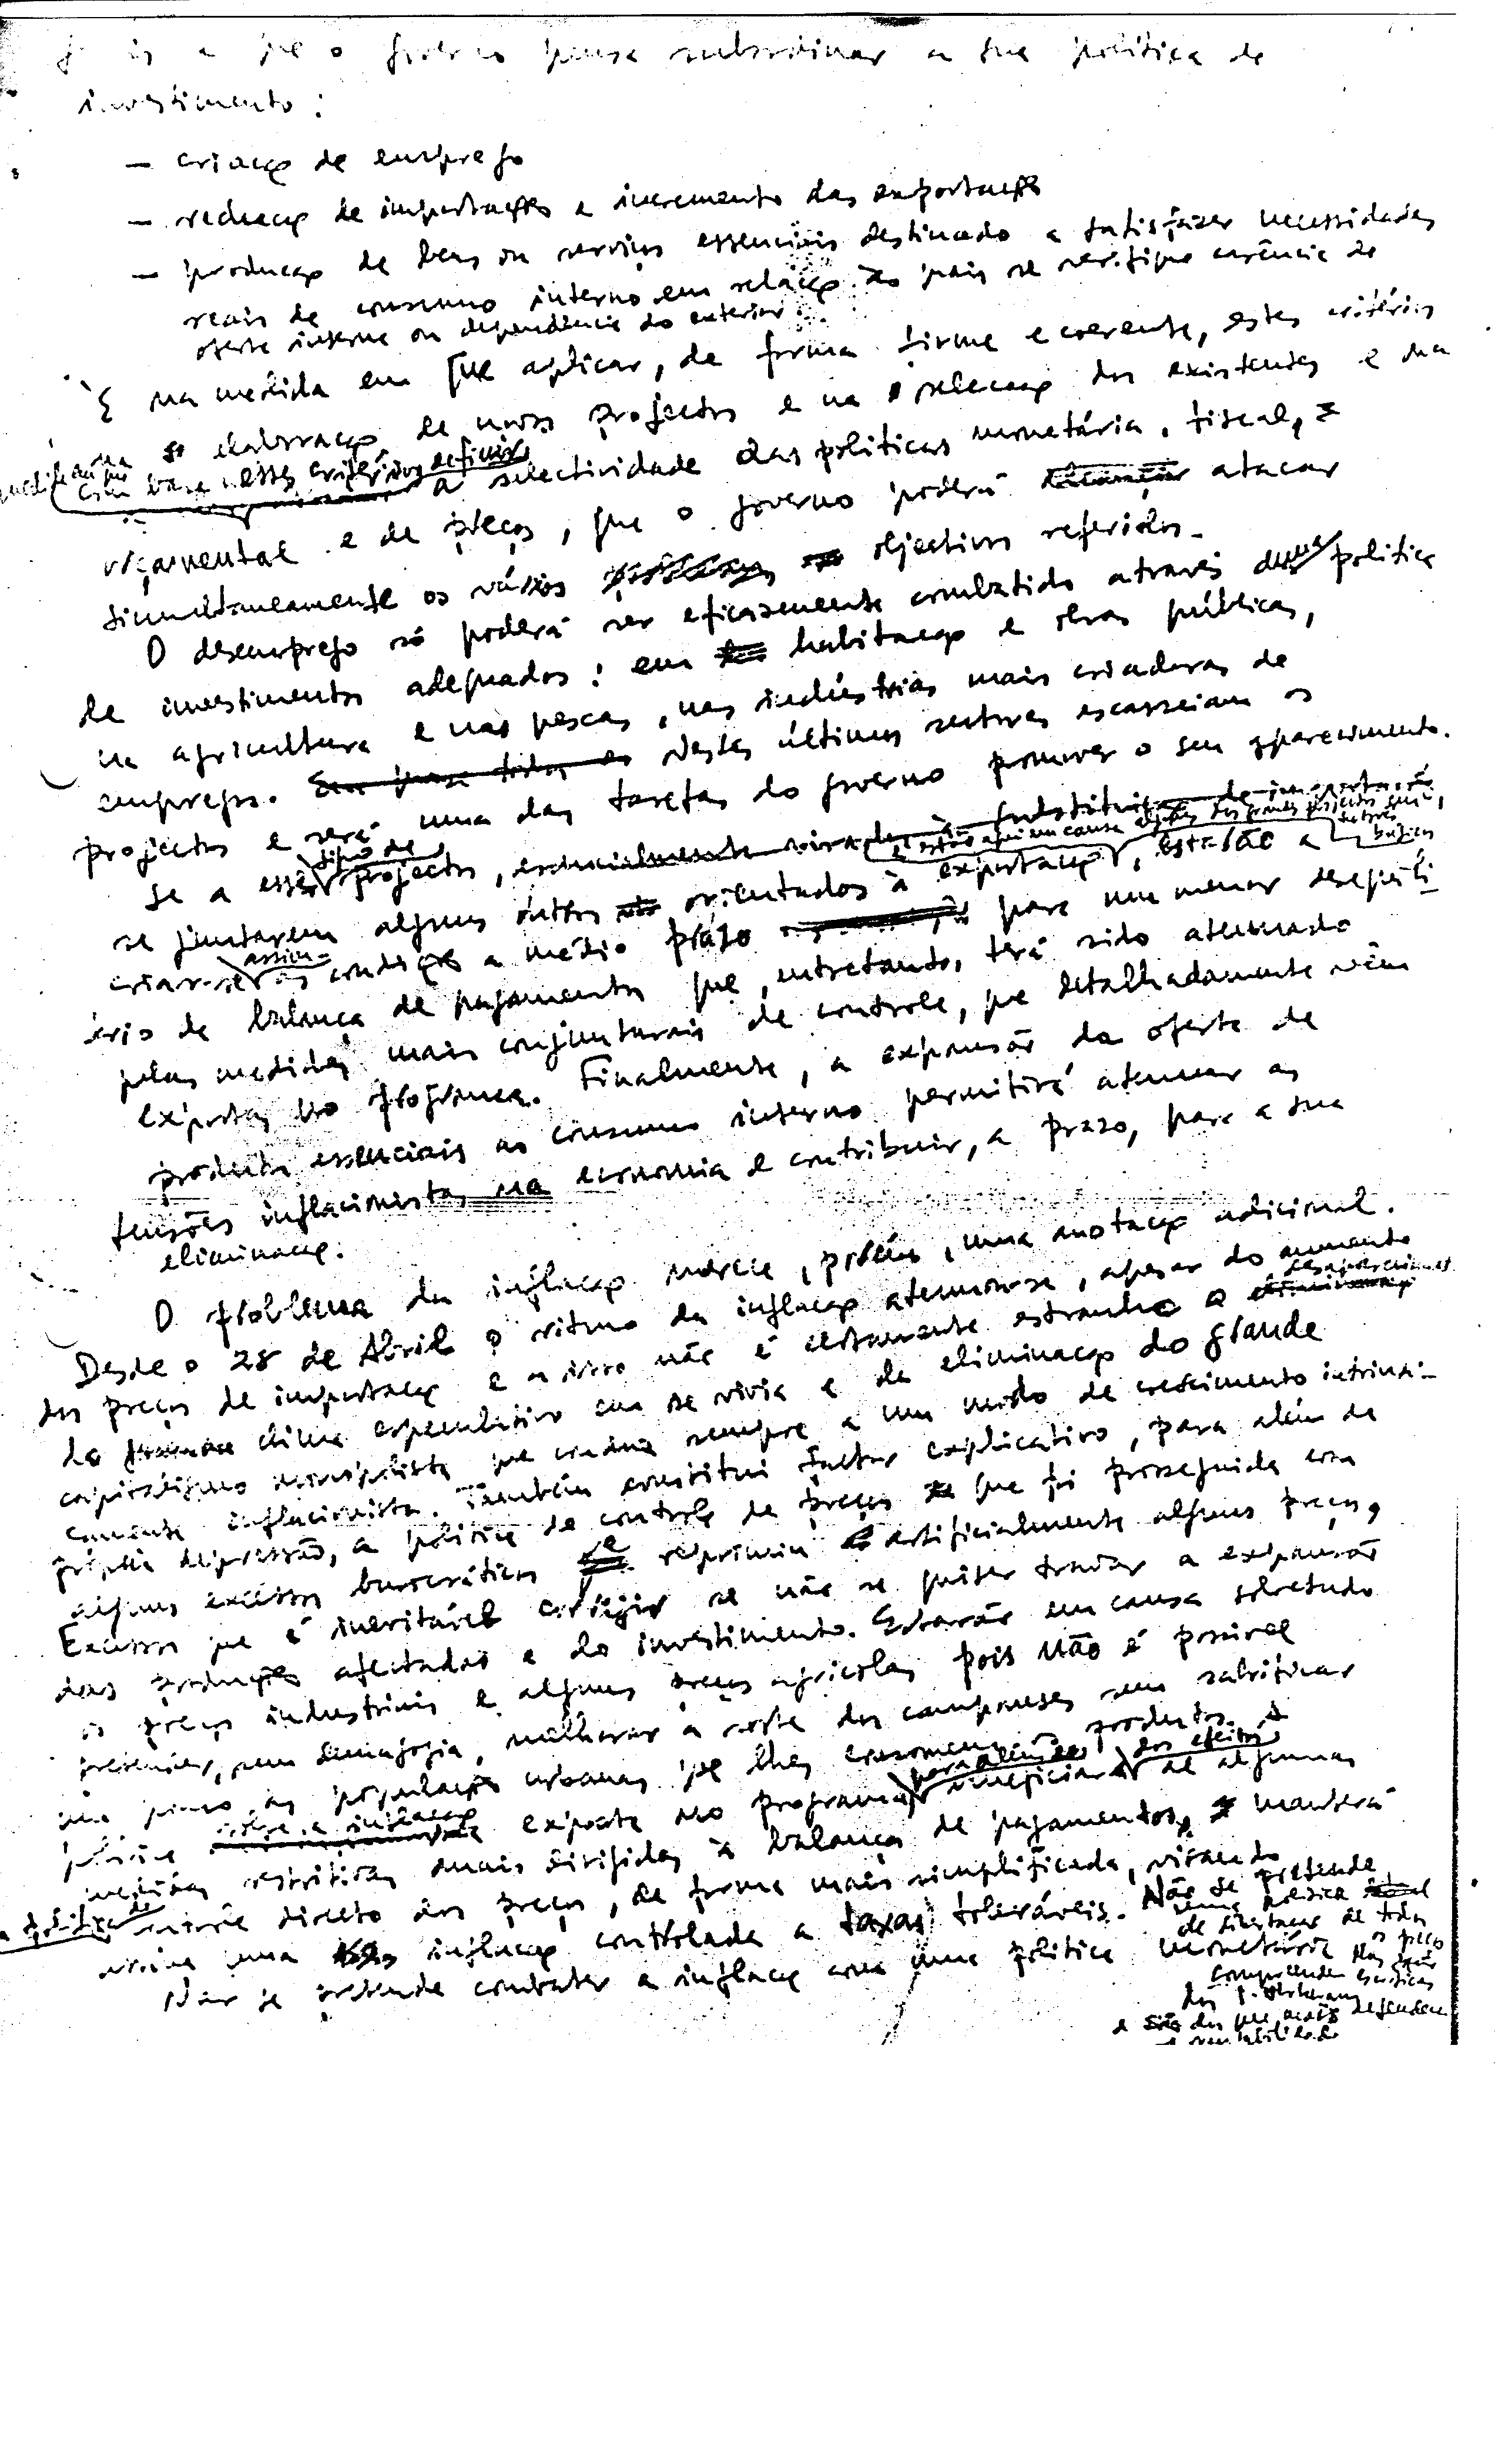 a que o governo pensa subordinar a sua política de
investimento:
— criação de emprego
— redução de importações e incremento das exportações
— produção de bens ou serviços essenciais destinado a satisfazer necessidades
reais de consumo interno em relação ao pais se verifique carência de
oferta interna ou dependência do exterior.
É na medida em que aplicar, de forma firme e coerente, estes critérios
na elaboração de novos projectos e na selecção dos existentes e na
com base nesses critérios definir
a selectividade das políticas monetária, fiscal,
orçamental e de preços, que o governo poderá atacar
simultaneamente os vários objectivos referidos.
O desemprego só poderá ser eficazmente combatido através duma política
de investimentos adequados: em habitação e obras públicas,
na agricultura e nas pescas, nas indústrias mais criadoras de
emprego. Nestes últimos sectores escasseiam os
projectos e será uma das tarefas do governo promover o seu aparecimento.
Se a esse tipo de projectos, especialmente virados à substituição de importações
estão aqui em causa alguns dos grandes projectos em sectores básicos
se juntarem alguns outros orientados à exportação, estarão a
criar-se assim as condições a médio prazo para um menor desequilí
brio da balança de pagamentos que, entretanto, terá sido atenuado
pelas medidas mais conjunturais de controle, que detalhadamente vêm
expostas no programa. Finalmente, a expansão da oferta de
produtos essenciais ao consumo interno permitirá atenuar as
tensões inflacionistas na economia e contribuir, a prazo, para a sua
eliminação.
O problema da inflação merece, porém, uma anotação adicional.
Desde o 28 de Abril o ritmo da inflação atenuou-se, apesar do aumento
dos preços de importação e a isso não é certamente estranho o desaparecimento
do clima especulativo em que se vivia e da eliminação do grande
capitalismo monopolista que conduz sempre a um modo de crescimento intrinse-
camente inflacionista. Também constitui factor explicativo, para além da
própria depressão, a política de controle de preços que foi prosseguida com
alguns excessos burocráticos e reprimiu artificialmente alguns preços,
Excessos que é inevitável corrigir se não se quiser travar a expansão
das produções afectadas e do investimento. Estarão em causa sobretudo
os preços industriais e alguns preços agrícolas pois não é possível
pretender, sem demagogia, melhorar a sorte dos camponeses sem sacrificar
um pouco as populações urbanas que lhes consomem os produtos. A
política sobre a inflação exposta no programa, para além de beneficiar dos efeitos de algumas
medidas restritivas mais dirigidas à balança de pagamentos, manterá
a política de controle directo dos preços, de forma mais simplificada, visando
uma inflação controlada a taxas toleráveis. Não se pretende
uma política
de libertação de todos
os preços
Não se pretende combater a inflação com uma política monetária